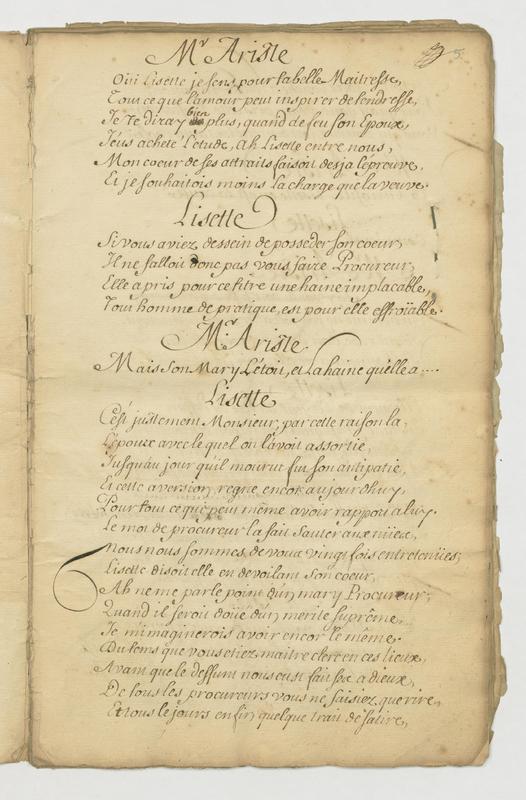 Mr Ariste
5.
Oüi Lisette je sens pour ta belle Maitresse,
Tout ce que l'amour peut inspirer de tendresse,
Je te diray bien plus, quand de feu son Epoux,
J'eus acheté l'etude, ah Lisette entre nous,
Mon coeur de ses attraits faisoit desja l'épreuve,
Et je souhaitois moins la charge que la veuve.
Lisette
Si vous aviez dessein de posseder son coeur,
Il ne falloit donc pas vous faire Procureur,
Elle a pris pour ce titre une haine implacable,
Tout homme de pratique, est pour elle effroïable.
Mr. Ariste
Mais son Mary L'étoit, et La haine qu'elle a....
Lisette
C'est justement Monsieur, par cette raison la,
L'époux avec lequel on l'avoit assortie,
Jusqu'au jour qu'il mourut fut son antipatie,
Et cette aversion, regne encor aujourd'huy,
Pour tout ce que peut même avoir rapport a luy.
Le mot de procureur la fait sauter aux nuëes,
Nous nous sommes, de vous vingt fois entretenües;
Lisette disoit elle en devoilant son coeur,
Ah ne me parle point d'un mary Procureur,
Quand il seroit doüé d'un merite suprême,
Je m'imaginerois avoir encor le même.
Du tems que vous etiez maitre clerc en ces lieux,
Avant que le deffunt nous eust fait ses adieux,
De tous les procureurs vous ne faisiez que rire,
Et tous le jours enfin quelque trait de satire,